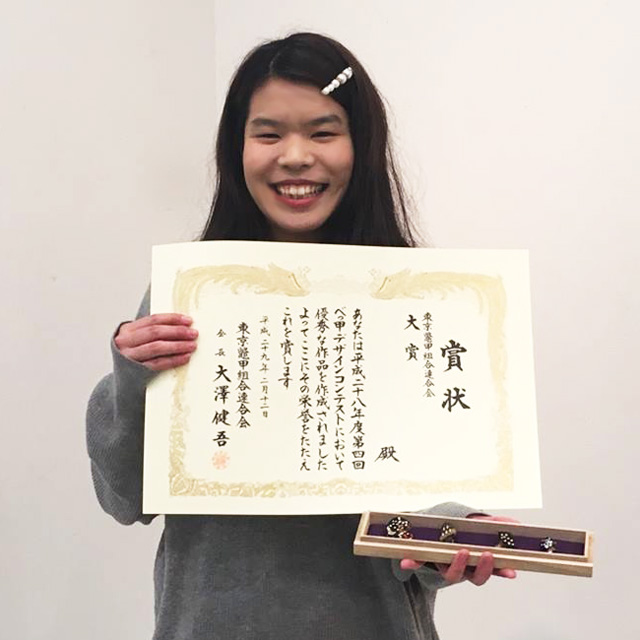 賞状
東京鼈甲組合連合会
大賞
殿
あなたは平成二十八年度第四回
べっ甲デザインコンテストにおいて
優秀な作品を作成されました
よってここにその栄誉をたたえ
これを賞します
平成二十九年二月十二日
東京鼈甲組合連合会
会長 大澤健吾